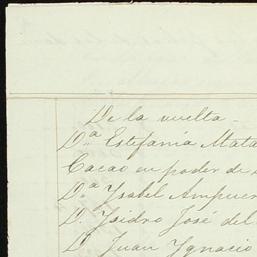 De la vuelta -
D.ª Estefanía Mata
Cacao en poder de
D.ª Ysabel Ampuer
D. Ysidro José del
D. Juan Ygnacio